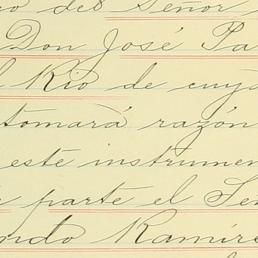 co del Señor
Don José Pa
l Rio de cuya
tomará razón
este instrumen
parte el Señ
ndo Ramíre